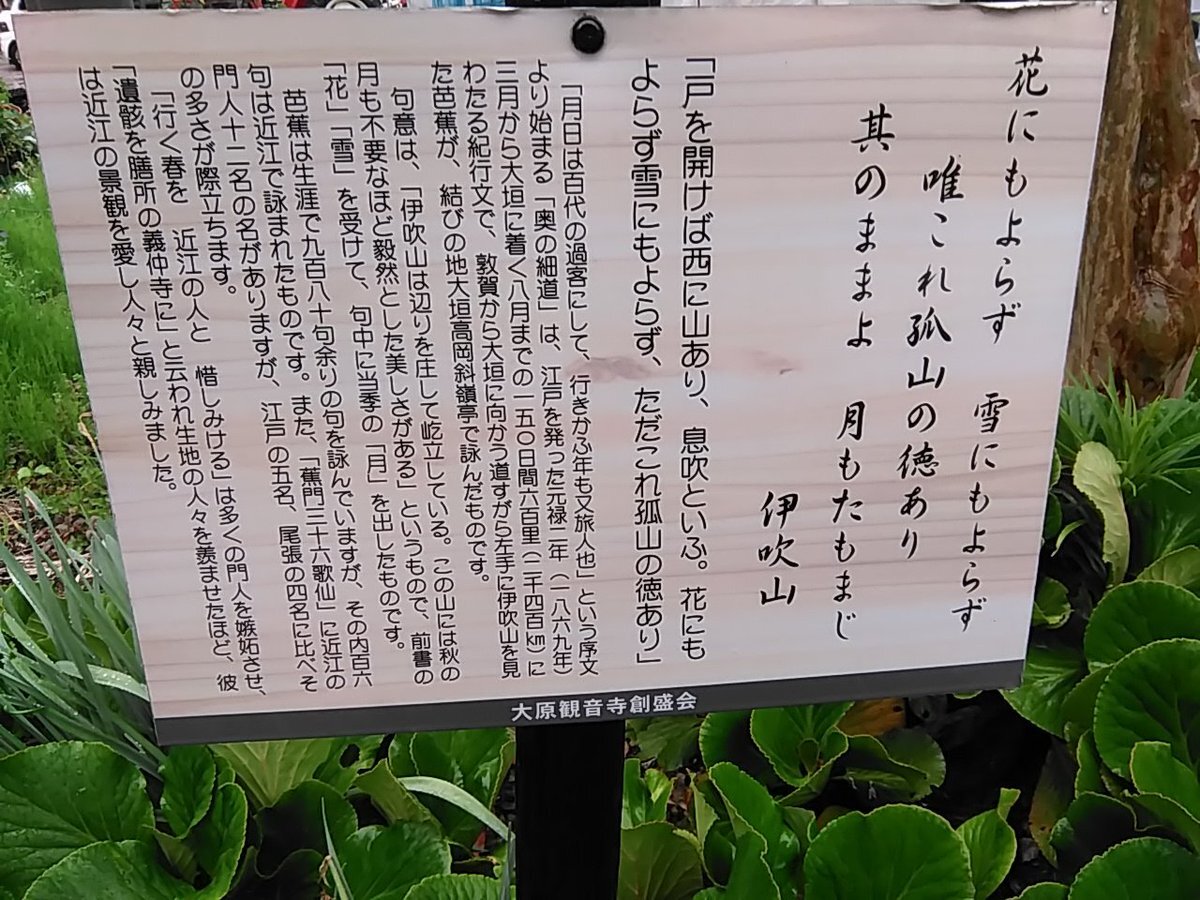 花にもよらず　雪にもよらず
唯これ孤山の徳あり
其のままよ　月もたもまじ
伊吹山
「戸を開けば西に山あり、息吹といふ。花にも
よらず雪にもよらず、ただこれ孤山の徳あり」
「月日は百代の過客にして、行きかふ年も又旅人也」という序文
より始まる「奥の細道」は、江戸を発った元禄二年（一八六九年）
三月から大垣に着く八月までの一五〇日間六百里（二千四百㎞）に
わたる紀行文で、敦賀から大垣に向かう道すがら左手に伊吹山を見
た芭蕉が、結びの地大垣高岡斜嶺亭で詠んだものです。
句意は、「伊吹山は辺りを圧して屹立している。この山には秋の
月も不要なほど毅然とした美しさがある」というもので、前書の
「花」「雪」を受けて、句中に当季の「月」を出したものです。
芭蕉は生涯で九百八十句余りの句を詠んでいますが、その内百六
句は近江で詠まれたものです。また、「蕉門三十六歌仙」に近江の
門人十二名の名がありますが、江戸の五名、尾張の四名に比べそ
の多さが際立ちます。
「行く春を　近江の人と　惜しみける」は多くの門人を嫉妬させ、
「遺骸を膳所の義仲寺に」と云われ生地の人々を羨ませたほど、彼
は近江の景観を愛し人々と親しみました。
大原観音寺創盛会